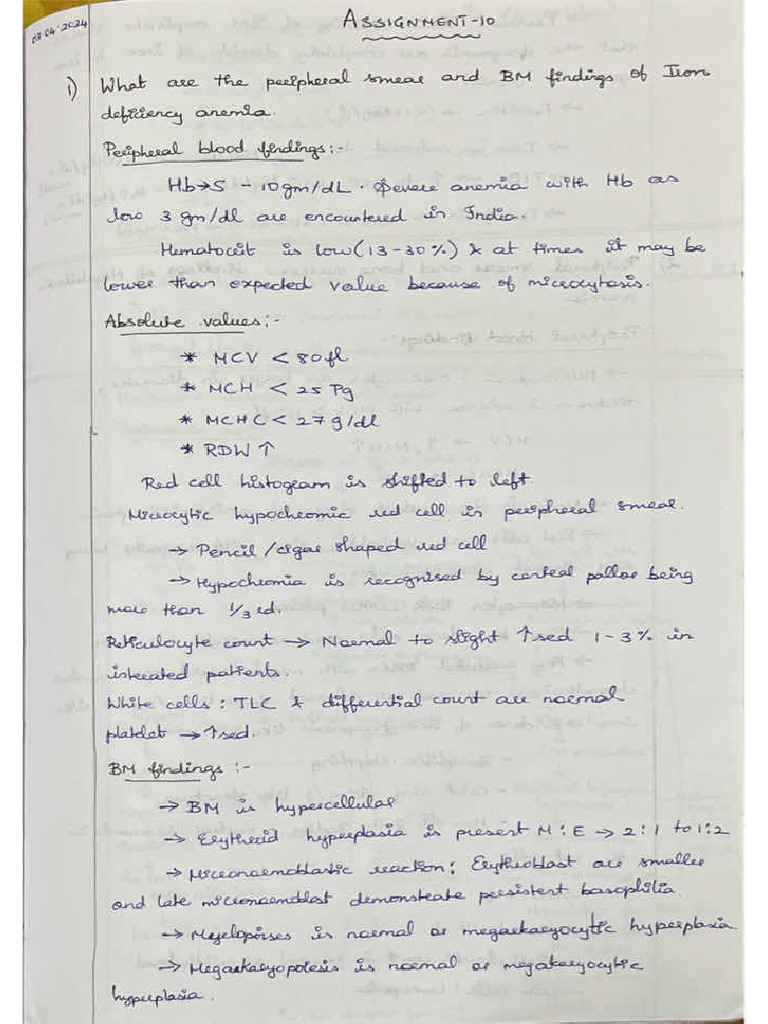 03-04-2024
ASSIGNMENT-10
1) What are the peripheral smear and BM findings of Iron
deficiency anemia.
Peripheral blood findings:-
Hb→5 - 10gm/dL. Severe anemia with Hb as
low 3 gm/dl are encountered in India.
Hematocrit is low(13-30%) & at times it may be
lower than expected value because of microcytosis.
Absolute values:-
* MCV < 80fl
* MCH < 25 Pg
* MCHC < 27 g/dl
* RDW ↑
Red cell histogram is shifted to left.
Microcytic hypochromic red cell in peripheral smear.
→ Pencil /cigar shaped red cell
→ Hypochromia is recognised by central pallor being
more than 1/3 rd.
Reticulocyte count → Normal to slight ↑sed 1-3% in
isterated patients.
White cells: TLC & differential count are normal
platelet → ↑sed.
BM findings :-
→ BM is hypercellular
→ Erythroid hyperplasia is present M:E → 2:1 to 1:2
→ Micronormoblastic reaction: Erythroblast are smaller
and late demonstrate persistent basophilia.
→ is normal or megarkaryocytic hyperplasia.
→ is normal or megakaryocytic
hyperplasia.